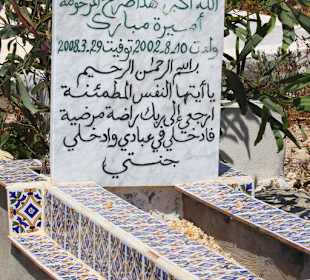 الله أكبر هذا ضريح المرحومة
أميرة مبارك
ولدت 2002.8.10 توفيت 2008.3.29
بسم الله الرحمان الرحيم
يا أيتها النفس المطمئنة
ارجعي إلى ربك راضة مرضية
فادخلي في عبادي وادخلي
جنتي